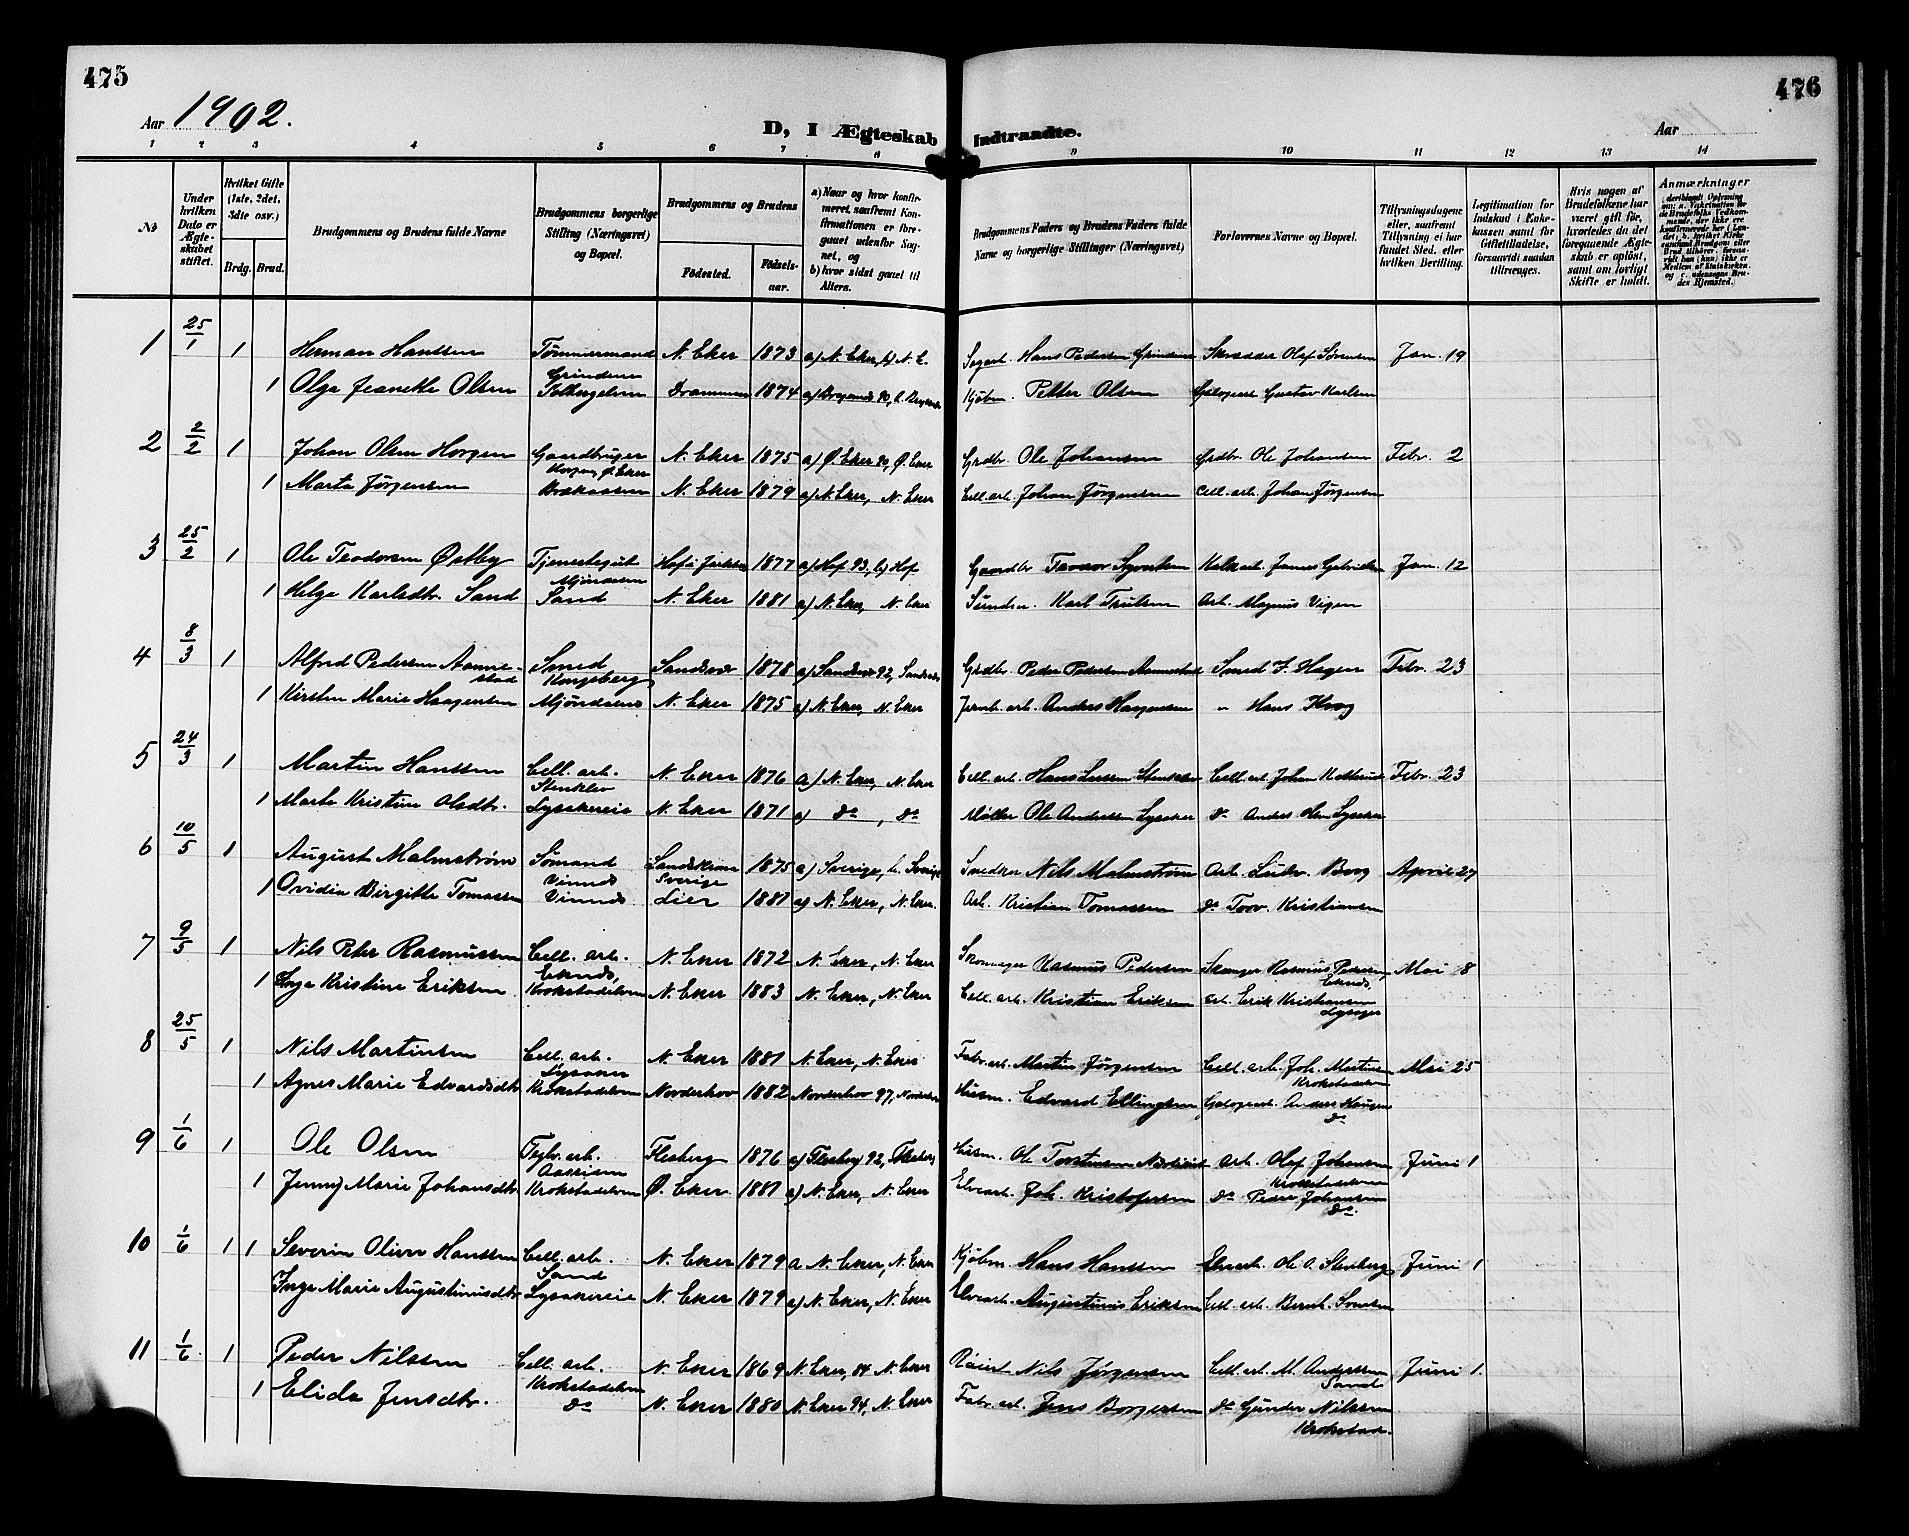 475
476
Aar 1902.
D, I Ægteskab Indtraadte.
Aar
1 2 3 4 5 6 7 8 9 10 11 12 13 14
No
Under hvilken Dato er Ægteskabet stiftet.
Hvilket Gifte (1ste, 2det, 3die osv.)
Brdg. Brud.
Brudgommens og Brudens fulde Navne
Brudgommens borgerlige Stilling (Næringsvei) og Bopæl.
Brudgommens og Brudens
Födested. Födsels-aar.
a) Naar og hvor konfirmeret, saafremt Konfirmationen er foregaaet udenfor Sognet, og
b) hvor sidst gaaet til Alters.
Brudgommens Faders og Brudens Faders fulde Navne og borgerlige Stillinger (Næringsvei)
Forlovernes Navne og Bopæl.
Tillysningsdagene eller, saafremt Tillysning ei har fundet Sted, efter hvilken Bevilling.
Legitimation for Indskud i Enkekassen samt for Giftetilladelse, forsaavidt saadan tiltrænges.
Hvis nogen af Brudefolkene har været gift för, hvorledes da det foregaaende Ægteskab er oplöst, samt om lovligt Skifte er holdt.
Anmærkninger
1 25/1 1 Herman Hanssen Tømmermand N. Eker 1873 a) N. Eker, b) N. E. Sagarb. Hans Pedersen Grindene Skrædder Olof Sørensen Jan. 19
Grindene
1 Olga Jeanette Olsen Solbergelven Drammen 1874 a) Bragernes 90, b. Bragernes Kjøbm. Petter Olsen Gustav Karlsen
2 2/2 1 Johan Olsen Horgen Gaardbruger N. Eker 1875 a) Ø. Eker 90, Ø. Eker Grdbr. Ole Johansen Grdbr. Ole Johansen Febr. 2
Horgen, Ø. Eker
1 Marta Jørgensen N. Eker 1879 a) N. Eker, N. Eker Cell. arb. Johan Jørgensen Cell. arb. Johan Jørgensen
3 25/2 1 Ole Teodorsen Østby Tjenestegut Hof i Jarlsb. 1877 a) Hof 93, b) Hof Gaardbr Jan. 12
Mjøndalen
1 Helga Karlsdtr. Sand Sand N. Eker 1881 a) N. Eker, N. Eker Karl Trulsen Arb. Magnus Vigen
4 8/3 1 Alfred Pedersen Aannestad Smed Sandsvær 1878 a) Sandsvær 92, Sandsvær Grdbr. Peder Pedersen Aannestad Smed F. Hagen Febr. 23
Kongsberg
1 Kirsten Marie Haagensen Mjøndalen N. Eker 1875 a) N. Eker, N. Eker Jernb. arb. Anders Haagensen " Hans Krog
5 24/3 1 Martin Hanssen Cell. arb. N. Eker 1876 a) N. Eker, N. Eker Cell. arb. Hans Larsen Stenklev Cell. arb. Johan Febr. 23
Stenklev
1 Marte Kristine Olsdtr. Lysakereie N. Eker 1871 a) do, do Møller Ole Andersen Lysaker do Anders Olsen Lysaker
6 10/5 1 August Malmstrøm Sømand Landskrona 1875 a) Sverige, b. Sverige Snedker Nils Malmstrøm Arb. Ludv. Borg April 27
Vinnes Sverige
1 Ovidia Birgitte Tomassen Vinnes Lier 1881 a) N. Eker, N. Eker. Arb. Kristian Tomassen do Torv. Kristiansen
7 9/5 1 Nils Peter Rasmussen Cell. arb. N. Eker 1872 N. Eker, N. Eker Skomager Rasmus Pedersen Skomager Rasmus Pedersen Mai 8
Eknes, Eknes,
1 Inga Kristine Eriksen Krokstadelven N. Eker 1883 N. Eker, N. Eker Cell. arb. Kristian Eriksen arb. Erik Kristiansen
Lysager
8 25/5 1 Nils Martinsen Cell. arb. N. Eker 1881 N. Eker, N. Eker Fabr. arb. Martin Jørgensen Cell. arb. Joh. Martinsen Mai 25
Lysaker Krokstadelven
1 Agnes Marie Edvardsdtr Krokstadelven Norderhov 1882 Norderhov 97, Norderhov Husm. Edvard Ellingsen Anders Haugen
do
9 1/6 1 Ole Olsen Teglv. arb. Flesberg 1876 a) Flesberg 92, Flesberg Husm. Ole Torstensen arb. Olaf Johansen Juni 1
Aasrisen Krokstadelven
1 Jenny Marie Johansdtr Krokstadelven Ø. Eker 1881 a) N. Eker, N. Eker Elvearb. Joh. Kristofersen do Peder Johansen
do.
10 1/6 1 1 Severin Oliver Hanssen Cell. arb. N. Eker 1879 a N. Eker, N. Eker Kjøbm. Hans Hanssen Elvearb. Ole A. Stenberg Juni 1
Sand
Inga Marie Augustinusdtr Lysakereie N. Eker 1879 a) N. Eker, N. Eker Elvearb. Augustinus Eriksen Cell. arb. Bernh.
11 1/6 1 Peder Nilssen Cell. arb. N. Eker 1869 N. Eker, 84 N. Eker Nils Jørgensen Cell. arb. M. Anderssen Juni 1.
Krokstadelven Sand
1 Elida Jensdtr. do N. Eker 1880 N. Eker 94, N. Eker Fabr. arb. Jens Borgersen do Gunder Nilssen
Krokstad.